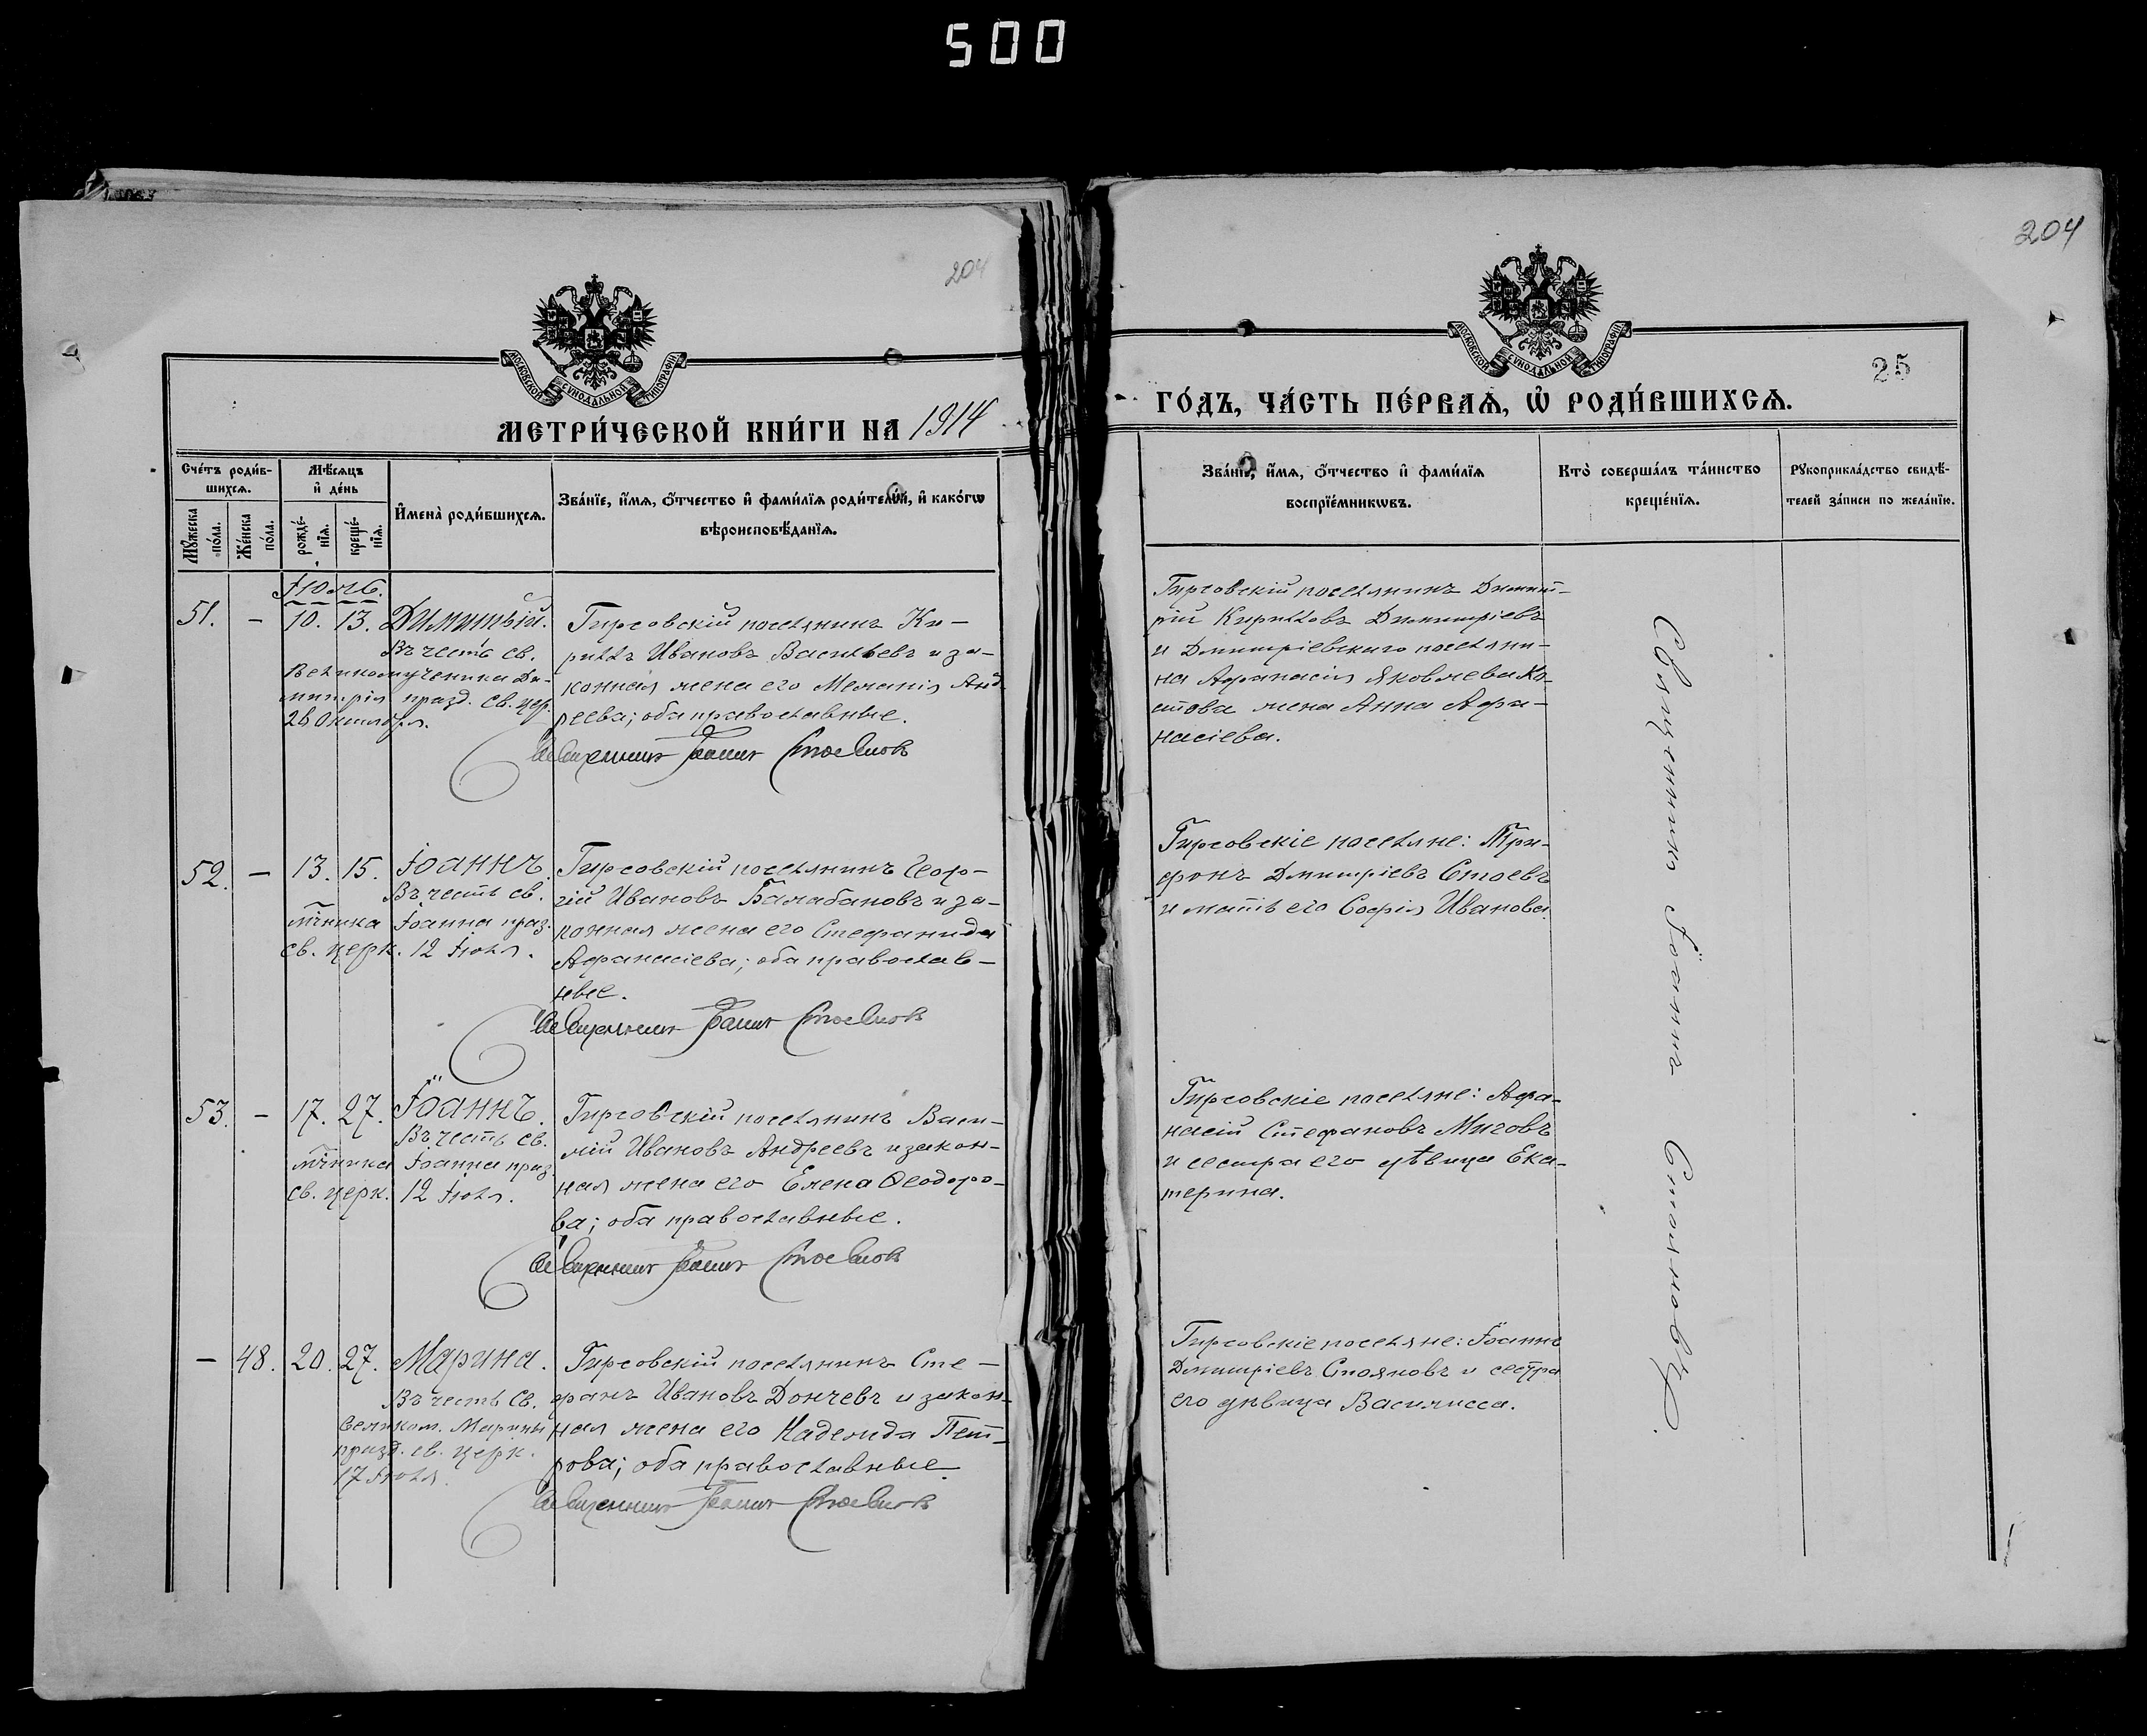 500
204
МОСКОВСКОЙ СѴНОДАЛЬНОЙ ТИПОГРАФІИ
МЕТРИ́ЧЕСКОЙ КНИ́ГИ НА 1914
Сче́тъ роди́в-
шихсѧ.
Мѣ́сѧцъ
и҆ де́нь
И҆мена̀ роди́вшихсѧ.
Зва́нїе, и҆́мѧ, ѻ҆́тчество и҆ фами́лїѧ роди́телей, и҆ како́гѡ
вѣроисповѣ́данїѧ.
Мꙋ́жеска
по́ла.
Же́нска
по́ла.
рожде́-
нїѧ.
креще́-
нїѧ.
Іюль.
51. – 10. 13. Димитрій.
Въ честь св.
Великомученика Ди-
митрія празд. св. цер.
26 Октября.
Гирсовскій поселянинъ Ки-
риллъ Ивановъ Васильевъ и за-
конная жена его Меланія Анд-
реева; оба православные.
Священникъ Іоаннъ Стояновъ
52. – 13. 15. Іоаннъ.
Въ честь св.
мч҃ника Іоанна праз.
св. церк. 12 Іюля.
Гирсовскій поселянинъ Геор-
гій Ивановъ Балабановъ и за-
конная жена его Стефанида
Афанасіева; оба православ-
ные.
Священникъ Іоаннъ Стояновъ
53. – 17. 27. Іоаннъ.
Въ честь св.
мч҃ника Іоанна праз.
св. церк. 12 Іюля.
Гирсовскій поселянинъ Васи-
лій Ивановъ Андреевъ и закон-
ная жена его Елена Ѳеодоро-
ва; оба православные.
Священникъ Іоаннъ Стояновъ
– 48. 20. 27. Марина.
Въ честь Св.
Великом. Марины
празд. св. церк.
17 Іюля.
Гирсовскій поселянинъ Сте-
фанъ Ивановъ Дончевъ и закон-
ная жена его Надежда Пет-
рова; оба православные.
Священникъ Іоаннъ Стояновъ
204
МОСКОВСКОЙ СѴНОДАЛЬНОЙ ТИПОГРАФІИ
25
ГО́ДЪ, ЧА́СТЬ ПЕ́РВАѦ, Ѡ҆ РОДИ́ВШИХСѦ.
Зва́нїе, и҆́мѧ, ѻ҆́тчество и҆ фами́лїѧ
воспрїе́мникѡвъ.
Кто̀ соверша́лъ та́инство
креще́нїѧ.
Рꙋкоприкла́дство свидѣ́-
телей за́писи по жела́нїю.
Гирсовскій поселянинъ Димит-
рій Кирилловъ Димитріевъ
и Дмитріевскаго поселяни-
на Афанасія Яковлева Ко-
това жена Анна Афа-
насіева.
Гирсовскіе поселяне: Три-
фонъ Дмитріевъ Стоевъ
и мать его Софія Иванова.
Гирсовскіе поселяне: Афа-
насій Стефановъ Миговъ
и сестра его дѣвица Ека-
терина.
Гирсовскіе поселяне: Іоаннъ
Дмитріевъ Стояновъ и сестра
его дѣвица Василисса.
Священникъ Іоаннъ Стояновъ.